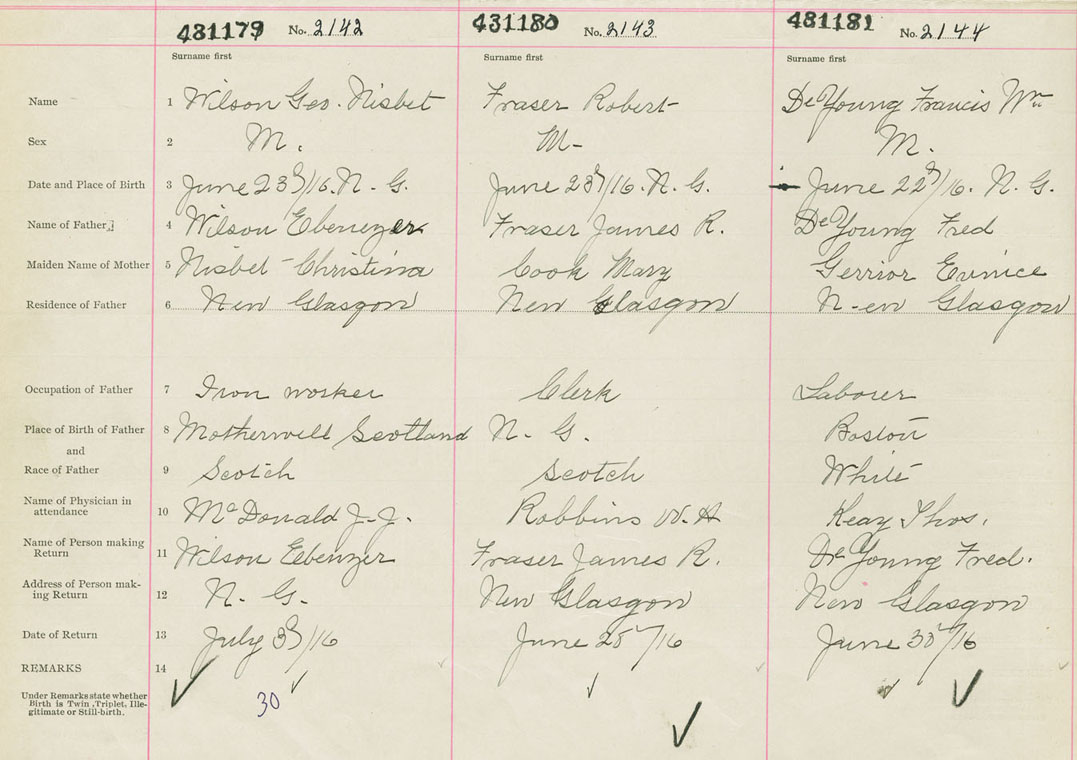 481179 No. 2142 431180 No. 2143 481181 No. 2144
Surname first Surname first Surname first
Name 1 Wilson Geo. Nisbet Fraser Robert De Young Francis Wm
Sex 2 M. M- M.
Date and Place of Birth 3 June 23d/16. N. G. June 23d/16. N. G. June 22d/16. N. G.
Name of Father 4 Wilson Ebenezer Fraser James R. De Young Fred
Maiden Name of Mother 5 Nisbet Christina Cook Mary Gerrior Eunice
Residence of Father 6 New Glasgow New Glasgow N-ew Glasgow
Occupation of Father 7 Iron worker Clerk Laborer
Place of Birth of Father 8 Motherwell Scotland N. G. Boston
and
Race of Father 9 Scotch Scotch White
Name of Physician in
attendance 10 McDonald J. J. Robbins W. H Keay Thos.
Name of Person making
Return 11 Wilson Ebenzer Fraser James R. De Young Fred.
Address of Person mak-
ing Return 12 N. G. New Glasgow New Glasgow
Date of Return 13 July 3d/16 June 25/16 June 30/16
REMARKS 14
Under Remarks state whether
Birth is Twin, Triplet, Ille-
gitimate or Still-birth.
30